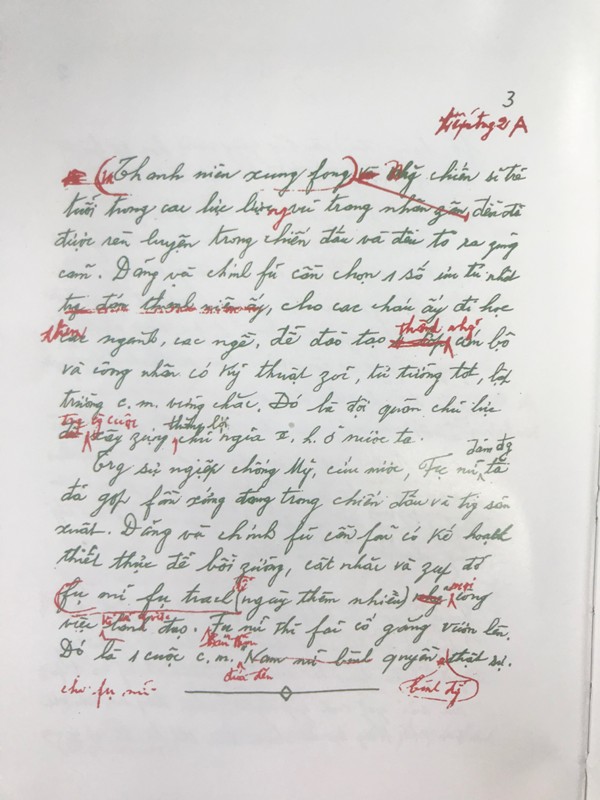 3
tiếp trang 2 A
(Thanh niên xung fong) những chiến sĩ trẻ
tuổi trong các lực lượng vũ trang nhân zân, đều đã
được rèn luyện trong chiến đấu và đều tỏ ra zũng
cảm. Đảng và chính fủ cần chọn 1 số ưu tú nhất
trg đám thanh niên ấy, cho các cháu ấy đi học
thêm
các ngành, các ngề, để đào tạo cán bộ
và công nhân có kỹ thuật zỏi, tư tưởng tốt, lập
trường c.m. vững chắc. Đó là đội quân chủ lực
trg công cuộc
thắng lợi
xây zựng chủ ngĩa x.h. ở nước ta.
đảm đg
Trg sự ngiệp chống Mỹ, cứu nước, Fụ nữ ta
đã góp fần xứng đáng trong chiến đấu và trg sản
xuất. Đảng và chính fủ cần fải có kế hoạch
thiết thực để bồi zưỡng, cất nhắc và zúp đỡ
fụ nữ fụ trách (ngày thêm nhiều) mọi công
việc kể cả lãnh đạo. Fụ nữ thì fải cố gắng vươn lên.
Đó là 1 cuộc c.m. Nam nữ bình quyền thật sự.
đưa đến
cho fụ nữ
bình đg